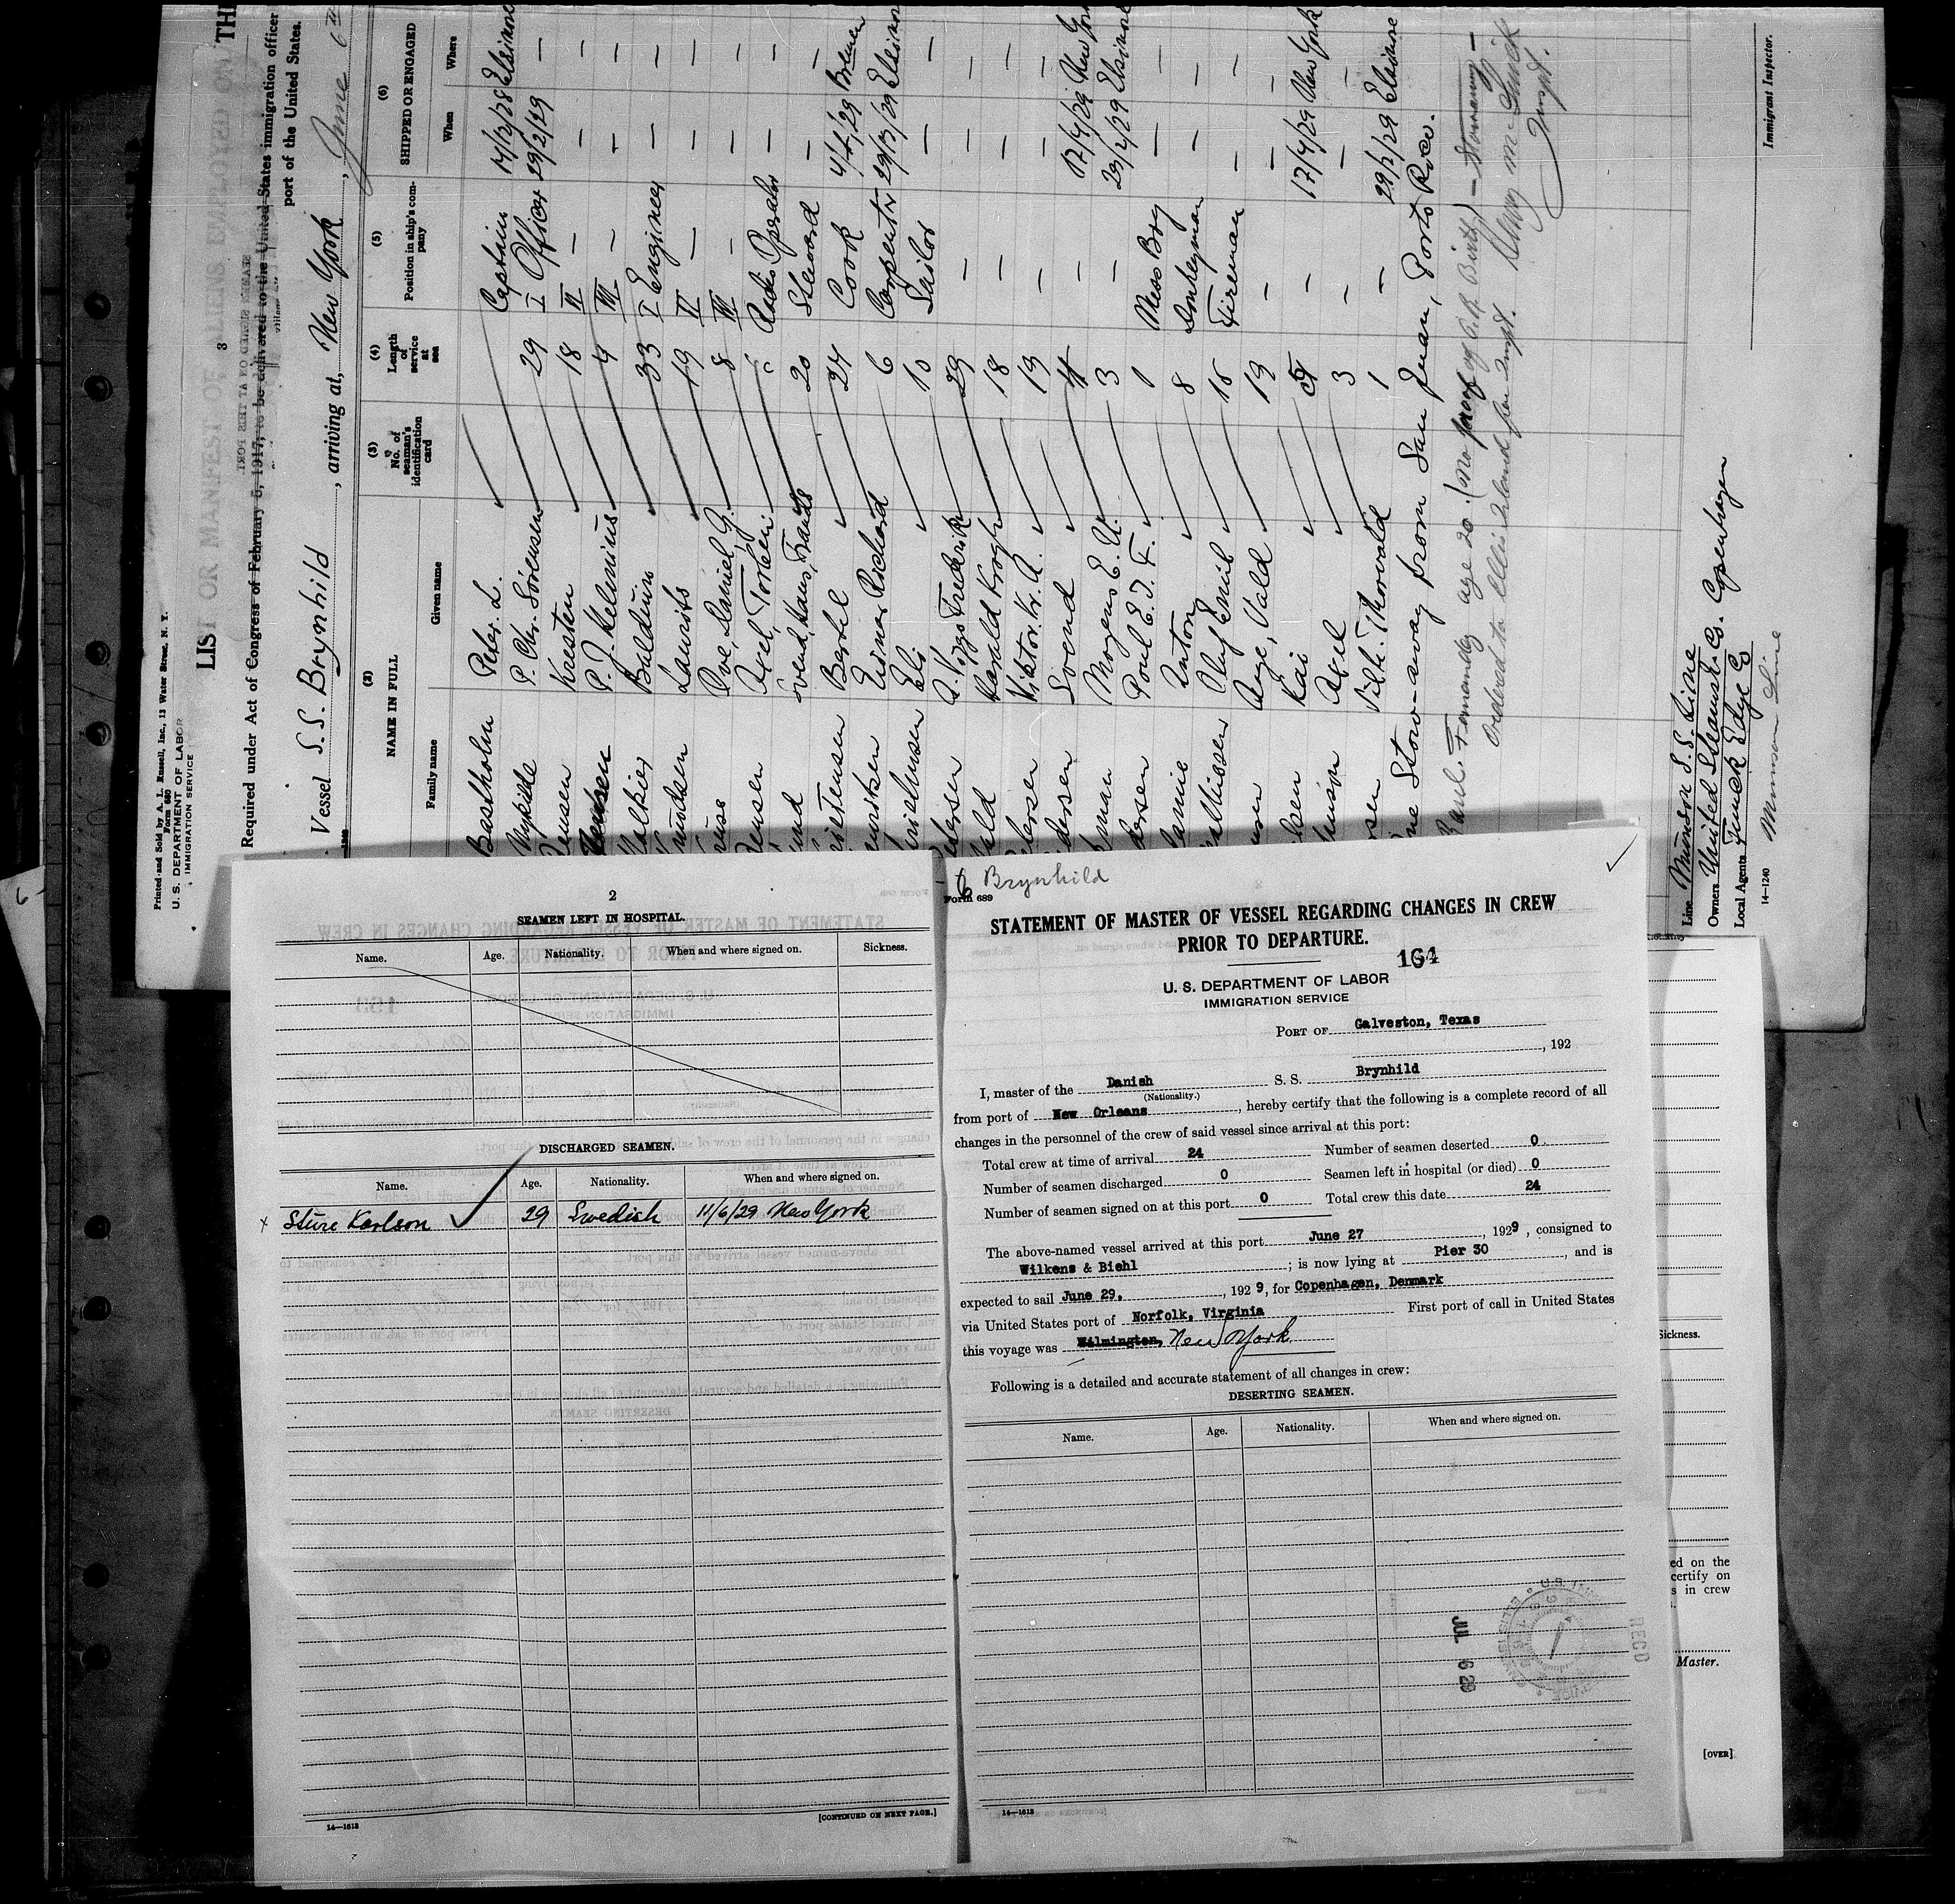 Printed and Sold by A. L. Russell, Inc., 13 Water Street, N. Y.
Form 680
U. S. DEPARTMENT OF LABOR
IMMIGRATION SERVICE
3
LIST OR MANIFEST OF ALIENS EMPLOYED ON TH
Required under Act of Congress of February 5, 1917, to be delivered to the United States immigration officer
port of the United States.
Vessel S.S. Brynhild, arriving at, New York, June 6th
(2)
NAME IN FULL
Family name
Given name
(3)
No. of seaman's identification card
(4)
Length of service at sea
(5)
Position in ship's company
(6)
SHIPPED OR ENGAGED
When
Where
Bastholm Peter. L. Captain 14/12/28 Elsinore
P. Chr. Sörensen 29 I Officer 29/2/29 —
Kresten 18 II — — —
P. J. Helenius 4 III — — —
Balduin 33 I Engineer — —
Laurits 19 II — — —
Ove, Daniel G. 8 III — — —
Axel, Torbein Radio Operator — —
Svend, Hans, Frants 20 Steward — —
Bertel 24 Cook Bremen
Einar Richard 6 Carpenter 29/3/29 Elsinore
Eli 10 Sailor — —
A. Viggo Frederik 29 — — —
Harald Krogh 18 — — —
Viktor. Kr. A. 19 — — —
Svend 17/4/29 New York
Mogens E. A. 3 23/4/29 Elsinore
Poul E. T. F. 1 Mess Boy — —
Anton 8 Donkeyman — —
Oluf Emil 16 Fireman — —
Aage, Vald 19 — — —
Kai — 17/4/29 New York
Axel 3 — — —
Vilh. Thorvald 1 — 29/2/29 Elsinore
One Stow-away from San Juan, Porto Rico.
Fernandez age 20. (No proof of U.S. Birth) — Stowaway —
Ordered to Ellis Island for Inspt.
Inspt.
Immigrant Inspector.
Line Munson S. S. Line
Owners United Steamsh. Co. Copenhagen
Local Agents Funch Edye Co
14—1240 Munson Line
2
SEAMEN LEFT IN HOSPITAL.
Name. Age. Nationality. When and where signed on. Sickness.
DISCHARGED SEAMEN.
Name. Age. Nationality. When and where signed on.
x Sture Karlson 29 Swedish 11/6/29 New York
[CONTINUED ON NEXT PAGE.]
14—1613
6 Brynhild
Form 689
STATEMENT OF MASTER OF VESSEL REGARDING CHANGES IN CREW
PRIOR TO DEPARTURE.
164
U. S. DEPARTMENT OF LABOR
IMMIGRATION SERVICE
PORT OF Galveston, Texas
, 192
I, master of the Danish S. S. Brynhild
(Nationality.)
from port of New Orleans, hereby certify that the following is a complete record of all
changes in the personnel of the crew of said vessel since arrival at this port:
Total crew at time of arrival 24 Number of seamen deserted 0
Number of seamen discharged 0 Seamen left in hospital (or died) 0
Number of seamen signed on at this port 0 Total crew this date 24
The above-named vessel arrived at this port June 27, 1929, consigned to
Wilkens & Biehl; is now lying at Pier 30, and is
expected to sail June 29, , 1929, for Copenhagen, Denmark
via United States port of Norfolk, Virginia First port of call in United States
this voyage was Wilmington, New York
Following is a detailed and accurate statement of all changes in crew:
DESERTING SEAMEN.
Name. Age. Nationality. When and where signed on.
JUL 6 29
REC'D
14—1613
Sickness.
ed on the
certify on
s in crew
Master.
[OVER]